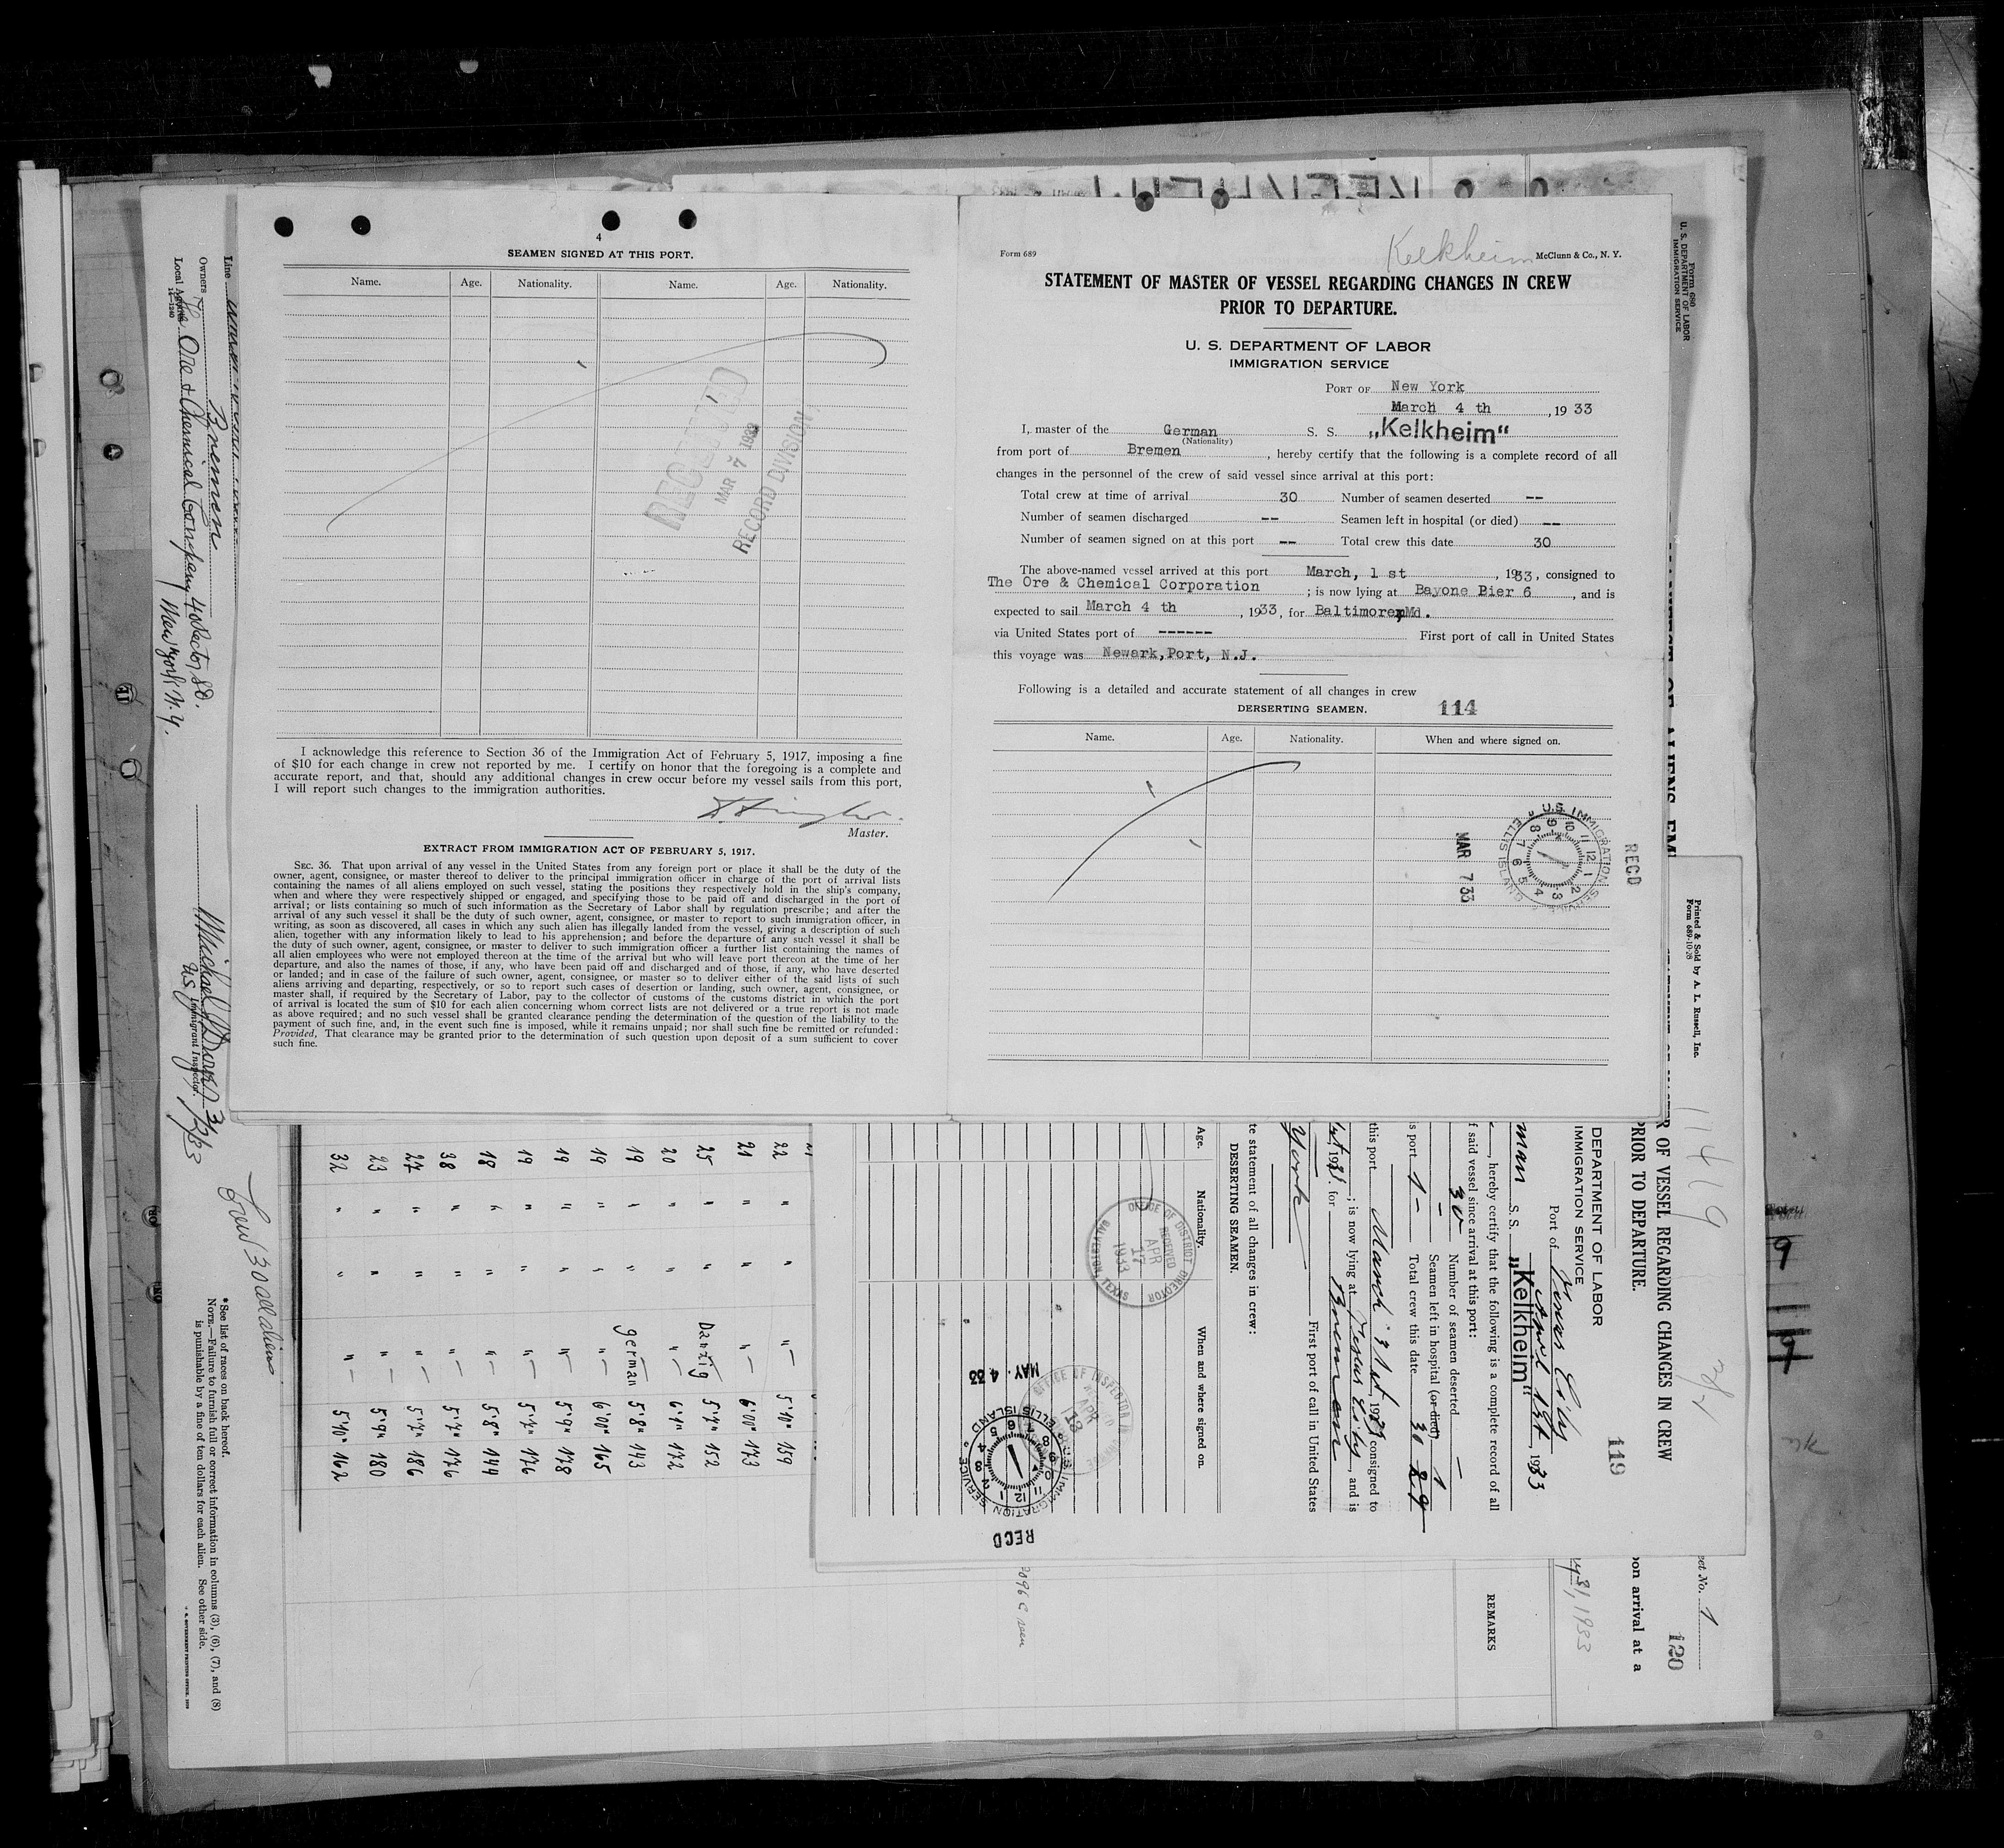 4
SEAMEN SIGNED AT THIS PORT.
Name. Age. Nationality. Name. Age. Nationality.
MAR 7 1933
RECORD DIVISION
I acknowledge this reference to Section 36 of the Immigration Act of February 5, 1917, imposing a fine
of $10 for each change in crew not reported by me. I certify on honor that the foregoing is a complete and
accurate report, and that, should any additional changes in crew occur before my vessel sails from this port,
I will report such changes to the immigration authorities.
Master.
EXTRACT FROM IMMIGRATION ACT OF FEBRUARY 5, 1917.
SEC. 36. That upon arrival of any vessel in the United States from any foreign port or place it shall be the duty of the
owner, agent, consignee, or master thereof to deliver to the principal immigration officer in charge of the port of arrival lists
containing the names of all aliens employed on such vessel, stating the positions they respectively hold in the ship's company,
when and where they were respectively shipped or engaged, and specifying those to be paid off and discharged in the port of
arrival; or lists containing so much of such information as the Secretary of Labor shall by regulation prescribe; and after the
arrival of any such vessel it shall be the duty of such owner, agent, consignee, or master to report to such immigration officer, in
writing, as soon as discovered, all cases in which any such alien has illegally landed from the vessel, giving a description of such
alien, together with any information likely to lead to his apprehension; and before the departure of any such vessel it shall be
the duty of such owner, agent, consignee, or master to deliver to such immigration officer a further list containing the names of
all alien employees who were not employed thereon at the time of the arrival but who will leave port thereon at the time of her
departure, and also the names of those, if any, who have been paid off and discharged and of those, if any, who have deserted
or landed; and in case of the failure of such owner, agent, consignee, or master so to deliver either of the said lists of such
aliens arriving and departing, respectively, or so to report such cases of desertion or landing, such owner, agent, consignee, or
master shall, if required by the Secretary of Labor, pay to the collector of customs of the customs district in which the port
of arrival is located the sum of $10 for each alien concerning whom correct lists are not delivered or a true report is not made
as above required; and no such vessel shall be granted clearance pending the determination of the question of the liability to the
payment of such fine, and, in the event such fine is imposed, while it remains unpaid; nor shall such fine be remitted or refunded:
Provided, That clearance may be granted prior to the determination of such question upon deposit of a sum sufficient to cover
such fine.
Kelkheim
Form 689 McClunn & Co., N. Y.
STATEMENT OF MASTER OF VESSEL REGARDING CHANGES IN CREW
PRIOR TO DEPARTURE.
U. S. DEPARTMENT OF LABOR
IMMIGRATION SERVICE
PORT OF New York
March 4 th, 1933
I, master of the German S. S. „Kelkheim“
(Nationality)
from port of Bremen, hereby certify that the following is a complete record of all
changes in the personnel of the crew of said vessel since arrival at this port:
Total crew at time of arrival 30 Number of seamen deserted --
Number of seamen discharged -- Seamen left in hospital (or died) --
Number of seamen signed on at this port -- Total crew this date 30
The above-named vessel arrived at this port March, 1 st, 1933, consigned to
The Ore & Chemical Corporation; is now lying at Bayone Pier 6, and is
expected to sail March 4 th, 1933, for Baltimore, Md.
via United States port of ------ First port of call in United States
this voyage was Newark, Port, N.J.
Following is a detailed and accurate statement of all changes in crew
DERSERTING SEAMEN. 114
Name. Age. Nationality. When and where signed on.
U.S. IMMIGRATION SERVICE ELLIS ISLAND
MAR 7 33
RECD
Line
Owners Bremen
Local Agents The Ore & Chemical Company, 40 Rector St.
New York N.Y.
Immigrant Inspector.
3/2/33
Crew 30 all aliens
* See list of races on back hereof.
NOTE.—Failure to furnish full or correct information in columns (3), (6), (7), and (8)
is punishable by a fine of ten dollars for each alien. See other side.
22 " " " 5'10" 159
21 " " " 6'00" 173
25 " " Danzig 5'7" 152
20 " " " 6'1" 172
19 " " german 5'8" 143
19 " " " 6'00" 165
19 " " " 5'9" 178
19 " " " 5'7" 176
18 " " " 5'8" 144
38 " " " 5'7" 176
27 " " " 5'7" 186
23 " " " 5'9" 180
32 " " " 5'10" 162
Form 680
U. S. DEPARTMENT OF LABOR
IMMIGRATION SERVICE
Printed & Sold by A. L. Russell, Inc.
Form 689-10-28
11419
119
R OF VESSEL REGARDING CHANGES IN CREW
PRIOR TO DEPARTURE.
DEPARTMENT OF LABOR
IMMIGRATION SERVICE
Port of Texas City
April 1st, 1933
man S. S. „Kelkheim“
, hereby certify that the following is a complete record of all
f said vessel since arrival at this port:
30 Number of seamen deserted –
– Seamen left in hospital (or died) 1
s port 1 – Total crew this date 30 29
this port March 31st, 1933 consigned to
; is now lying at Texas City, and is
for Bremen
York First port of call in United States
te statement of all changes in crew:
DESERTING SEAMEN.
Age. Nationality. When and where signed on.
OFFICE OF DISTRICT DIRECTOR
RECEIVED
APR 17 1933
GALVESTON, TEXAS
MAY 4 33
U.S. IMMIGRATION SERVICE ELLIS ISLAND
RECD
REMARKS
on arrival at a
eet No. 1
120